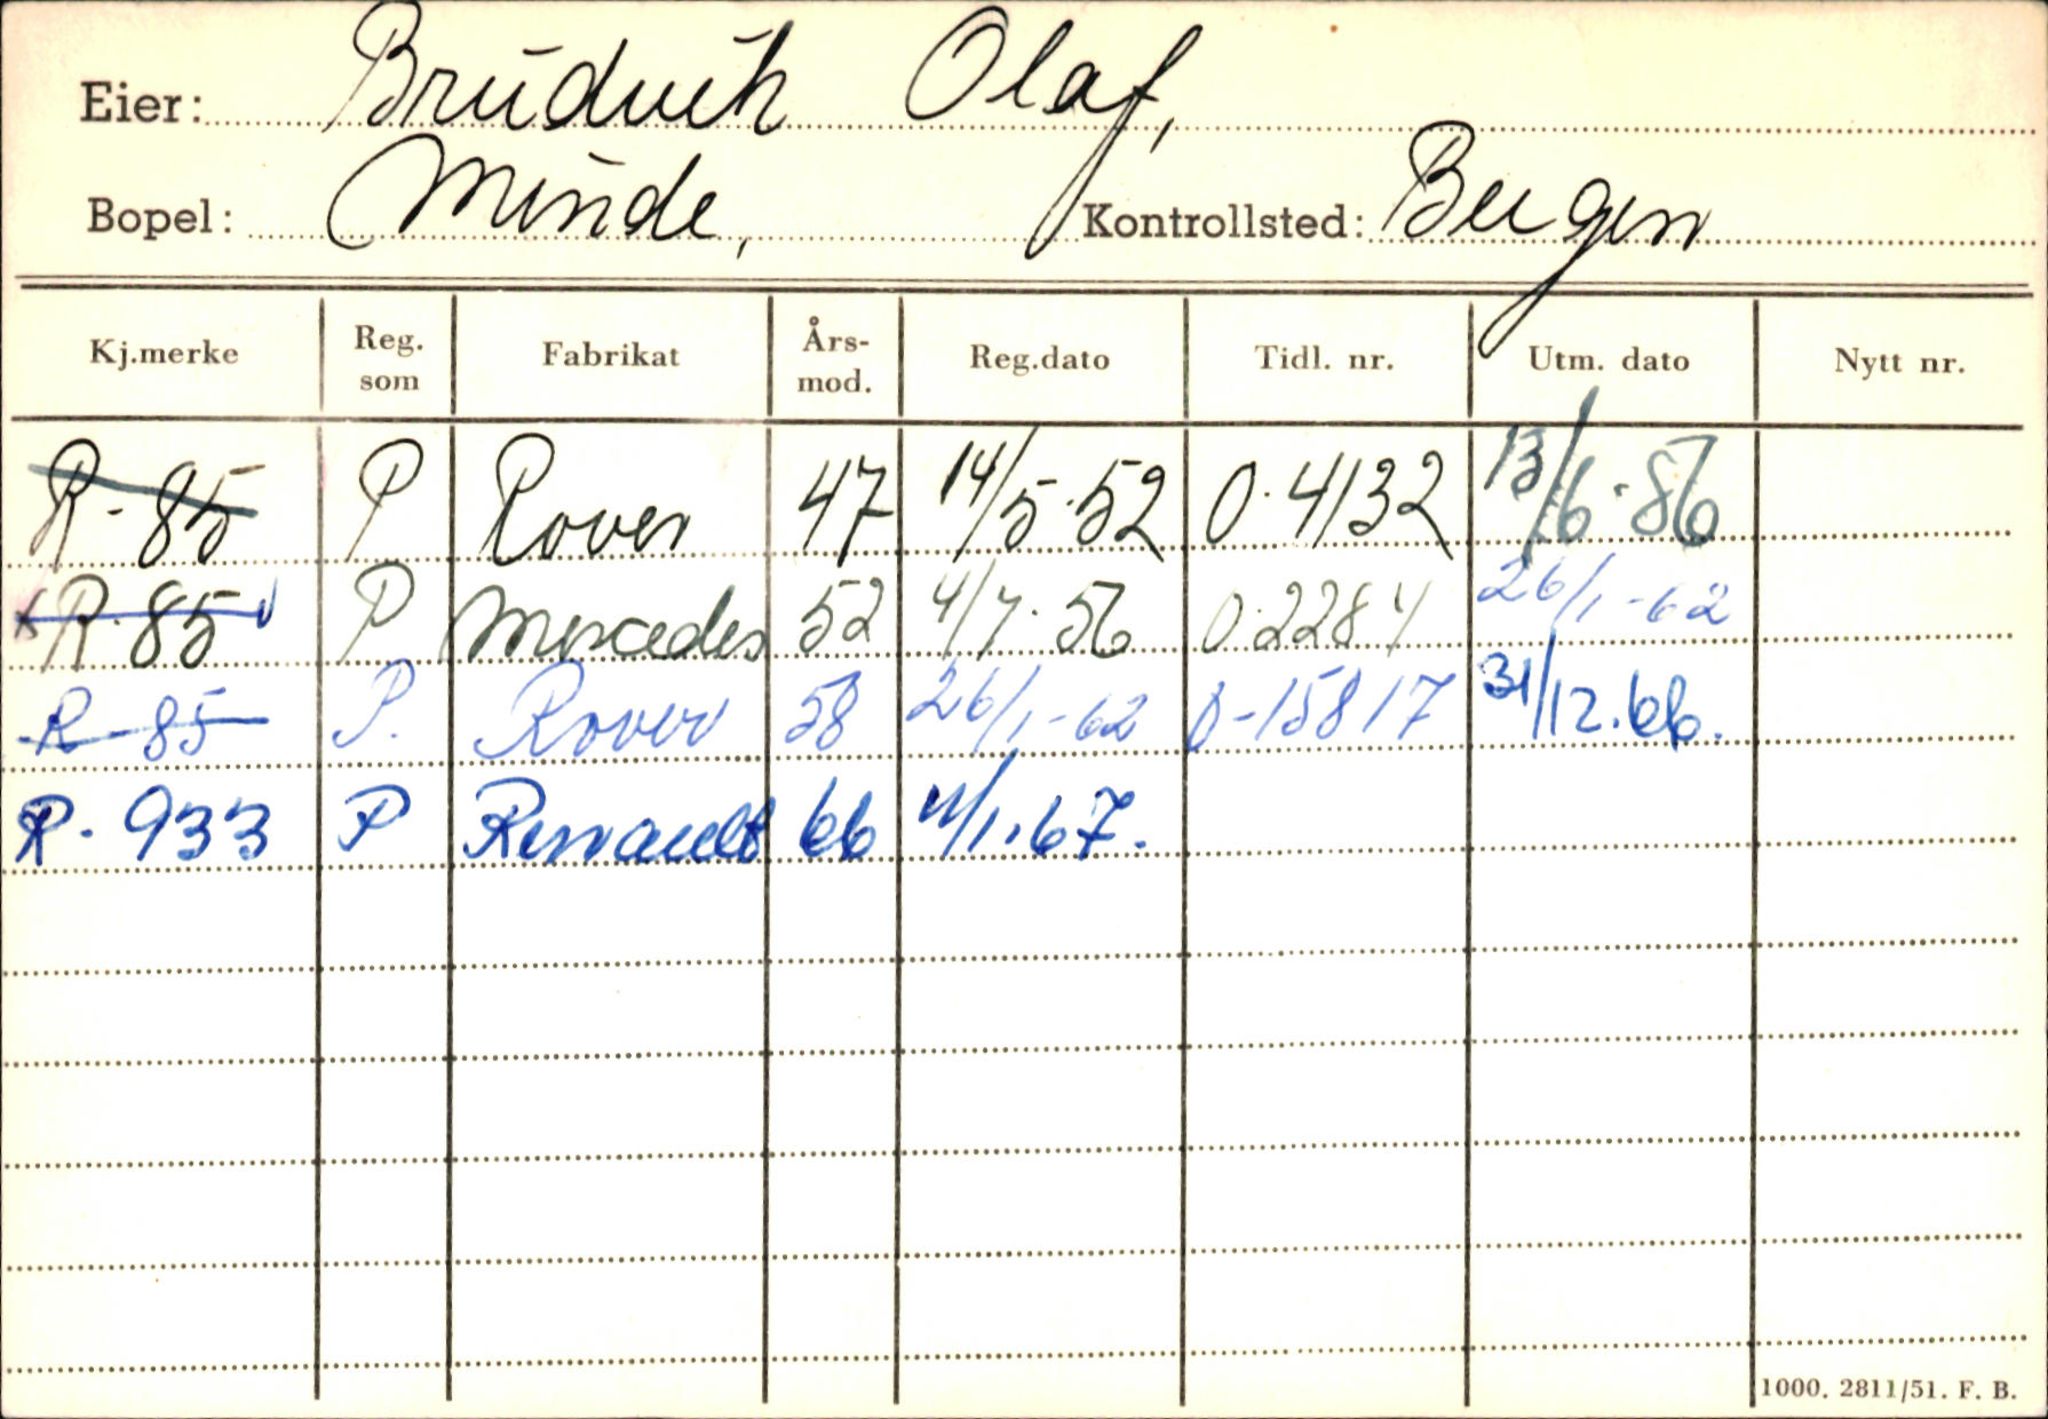 Eier: Brudvik Olaf,
Bopel: Minde, Kontrollsted: Bergen
Kj.merke Reg. som Fabrikat Års-mod. Reg.dato Tidl. nr. Utm. dato Nytt nr.
R-85 P Rover 47 14/5.52 O.4132 13/6.56
R.85 P Mercedes 52 4/7.56 O.2284 26/1-62
R-85 P. Rover 58 26/1-62 O-15817 31/12.66.
R.933 P Renault 66 4/1.67.
1000. 2811/51. F. B.